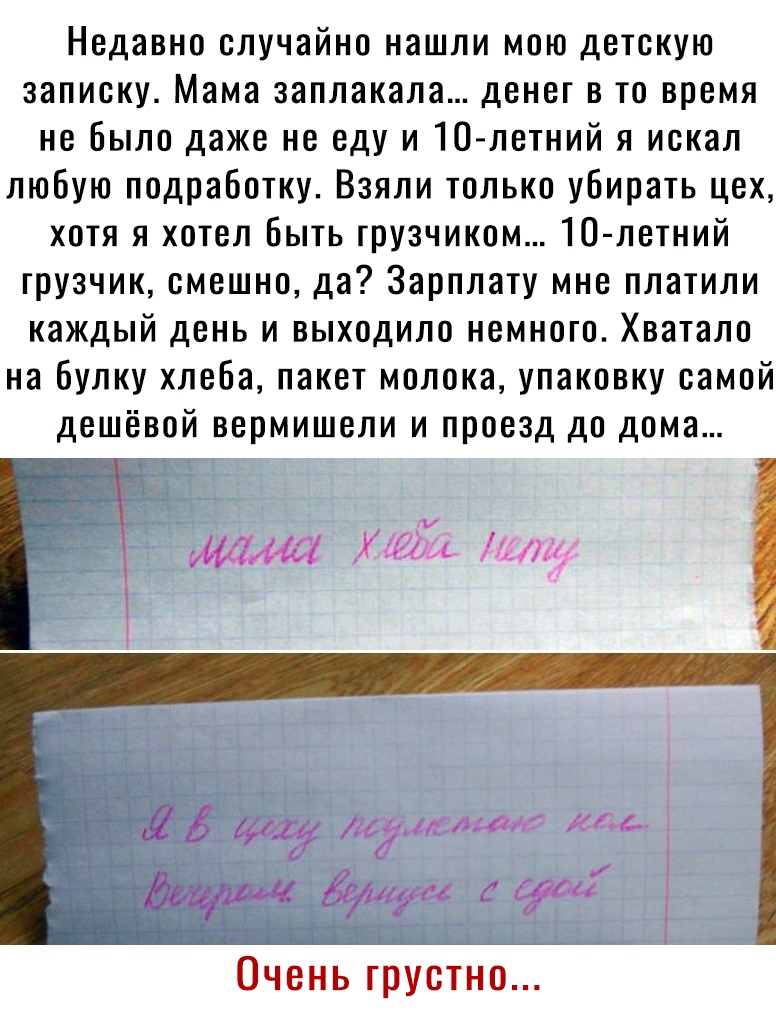 Недавно случайно нашли мою детскую
записку. Мама заплакала... денег в то время
не было даже не еду и 10-летний я искал
любую подработку. Взяли только убирать цех,
хотя я хотел быть грузчиком... 10-летний
грузчик, смешно, да? Зарплату мне платили
каждый день и выходило немного. Хватало
на булку хлеба, пакет молока, упаковку самой
дешёвой вермишели и проезд до дома...
мама хлеба нету
Я в цеху подметаю пол
Вечером вернусь с едой
Очень грустно...